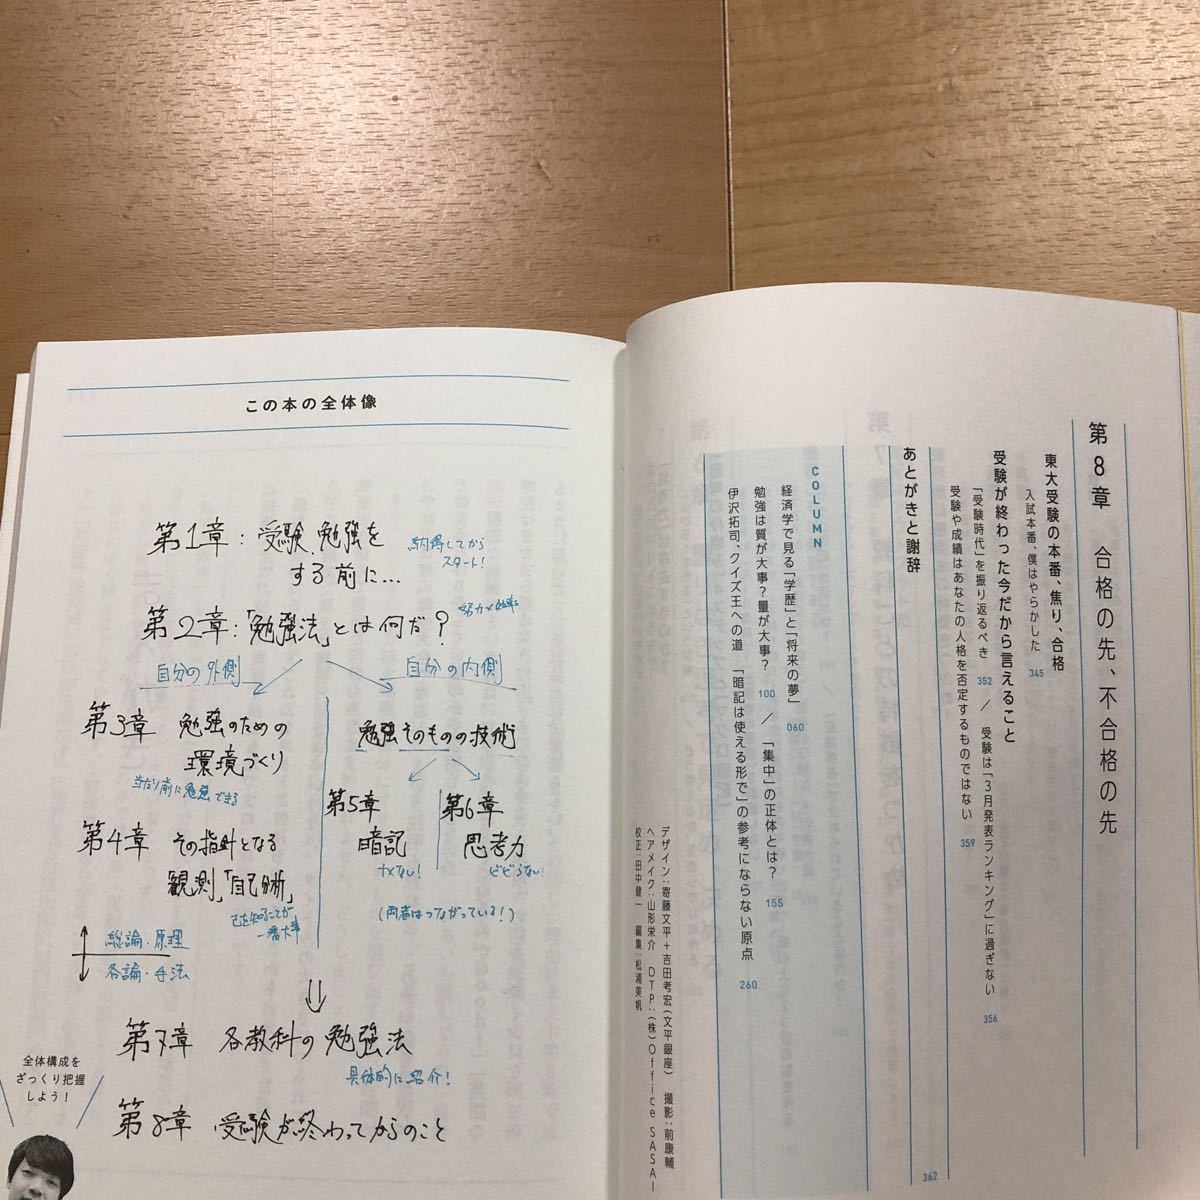 この本の全体像
第1章:受験勉強を
する前に…
納得してから
スタート!
第2章:「勉強法」とは何だ?
努力×効率
自分の外側
自分の内側
第3章 勉強のための
環境づくり
当たり前に勉強できる
第4章 その指針となる
観測、「自己分析」
己を知ることが
一番大事
勉強そのものの技術
第5章
暗記
ナメない!
第6章
思考力
ビビらない!
(両者はつながっている!)
総論・原理
各論・手法
第7章 各教科の勉強法
具体的に紹介!
第8章 受験が終わってからのこと
全体構成を
ざっくり把握
しよう!
第8章 合格の先、不合格の先
東大受験の本番、焦り、合格
入試本番、僕はやらかした 345
受験が終わった今だから言えること
「受験時代」を振り返るべき 352 / 受験は「3月発表ランキング」に過ぎない 356
受験や成績はあなたの人格を否定するものではない 359
あとがきと謝辞 362
COLUMN
経済学で見る「学歴」と「将来の夢」 060
勉強は質が大事?量が大事? 100 / 「集中」の正体とは? 155
伊沢拓司、クイズ王への道 「暗記は使える形で」の参考にならない原点 260
デザイン:寄藤文平+吉田考宏(文平銀座) 撮影:前康輔
ヘアメイク:山形栄介 DTP:(株)Office SASAI
校正:田中健一 編集:松浦美帆